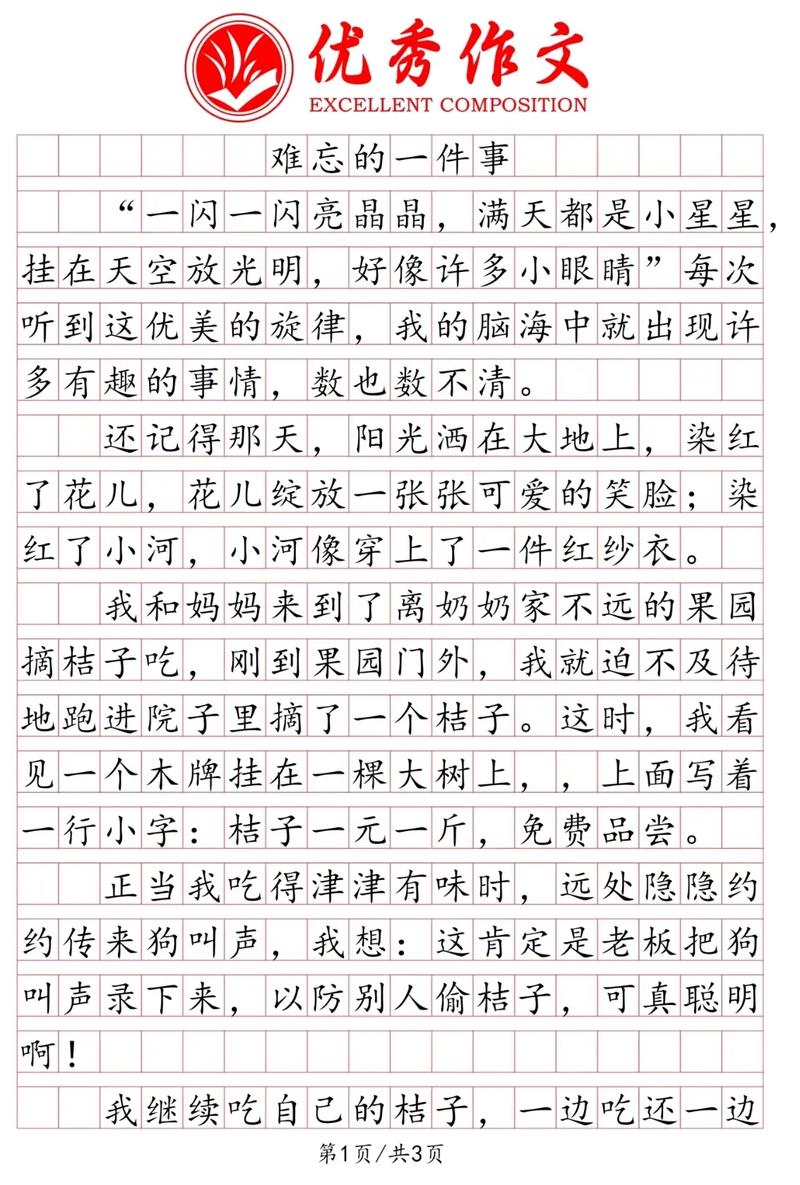 优秀作文
EXCELLENT COMPOSITION
难忘的一件事
“一闪一闪亮晶晶，满天都是小星星，
挂在天空放光明，好像许多小眼睛”每次
听到这优美的旋律，我的脑海中就出现许
多有趣的事情，数也数不清。
还记得那天，阳光洒在大地上，染红
了花儿，花儿绽放一张张可爱的笑脸；染
红了小河，小河像穿上了一件红纱衣。
我和妈妈来到了离奶奶家不远的果园
摘桔子吃，刚到果园门外，我就迫不及待
地跑进院子里摘了一个桔子。这时，我看
见一个木牌挂在一棵大树上，，上面写着
一行小字：桔子一元一斤，免费品尝。
正当我吃得津津有味时，远处隐隐约
约传来狗叫声，我想：这肯定是老板把狗
叫声录下来，以防别人偷桔子，可真聪明
啊！
我继续吃自己的桔子，一边吃还一边
第1页/共3页